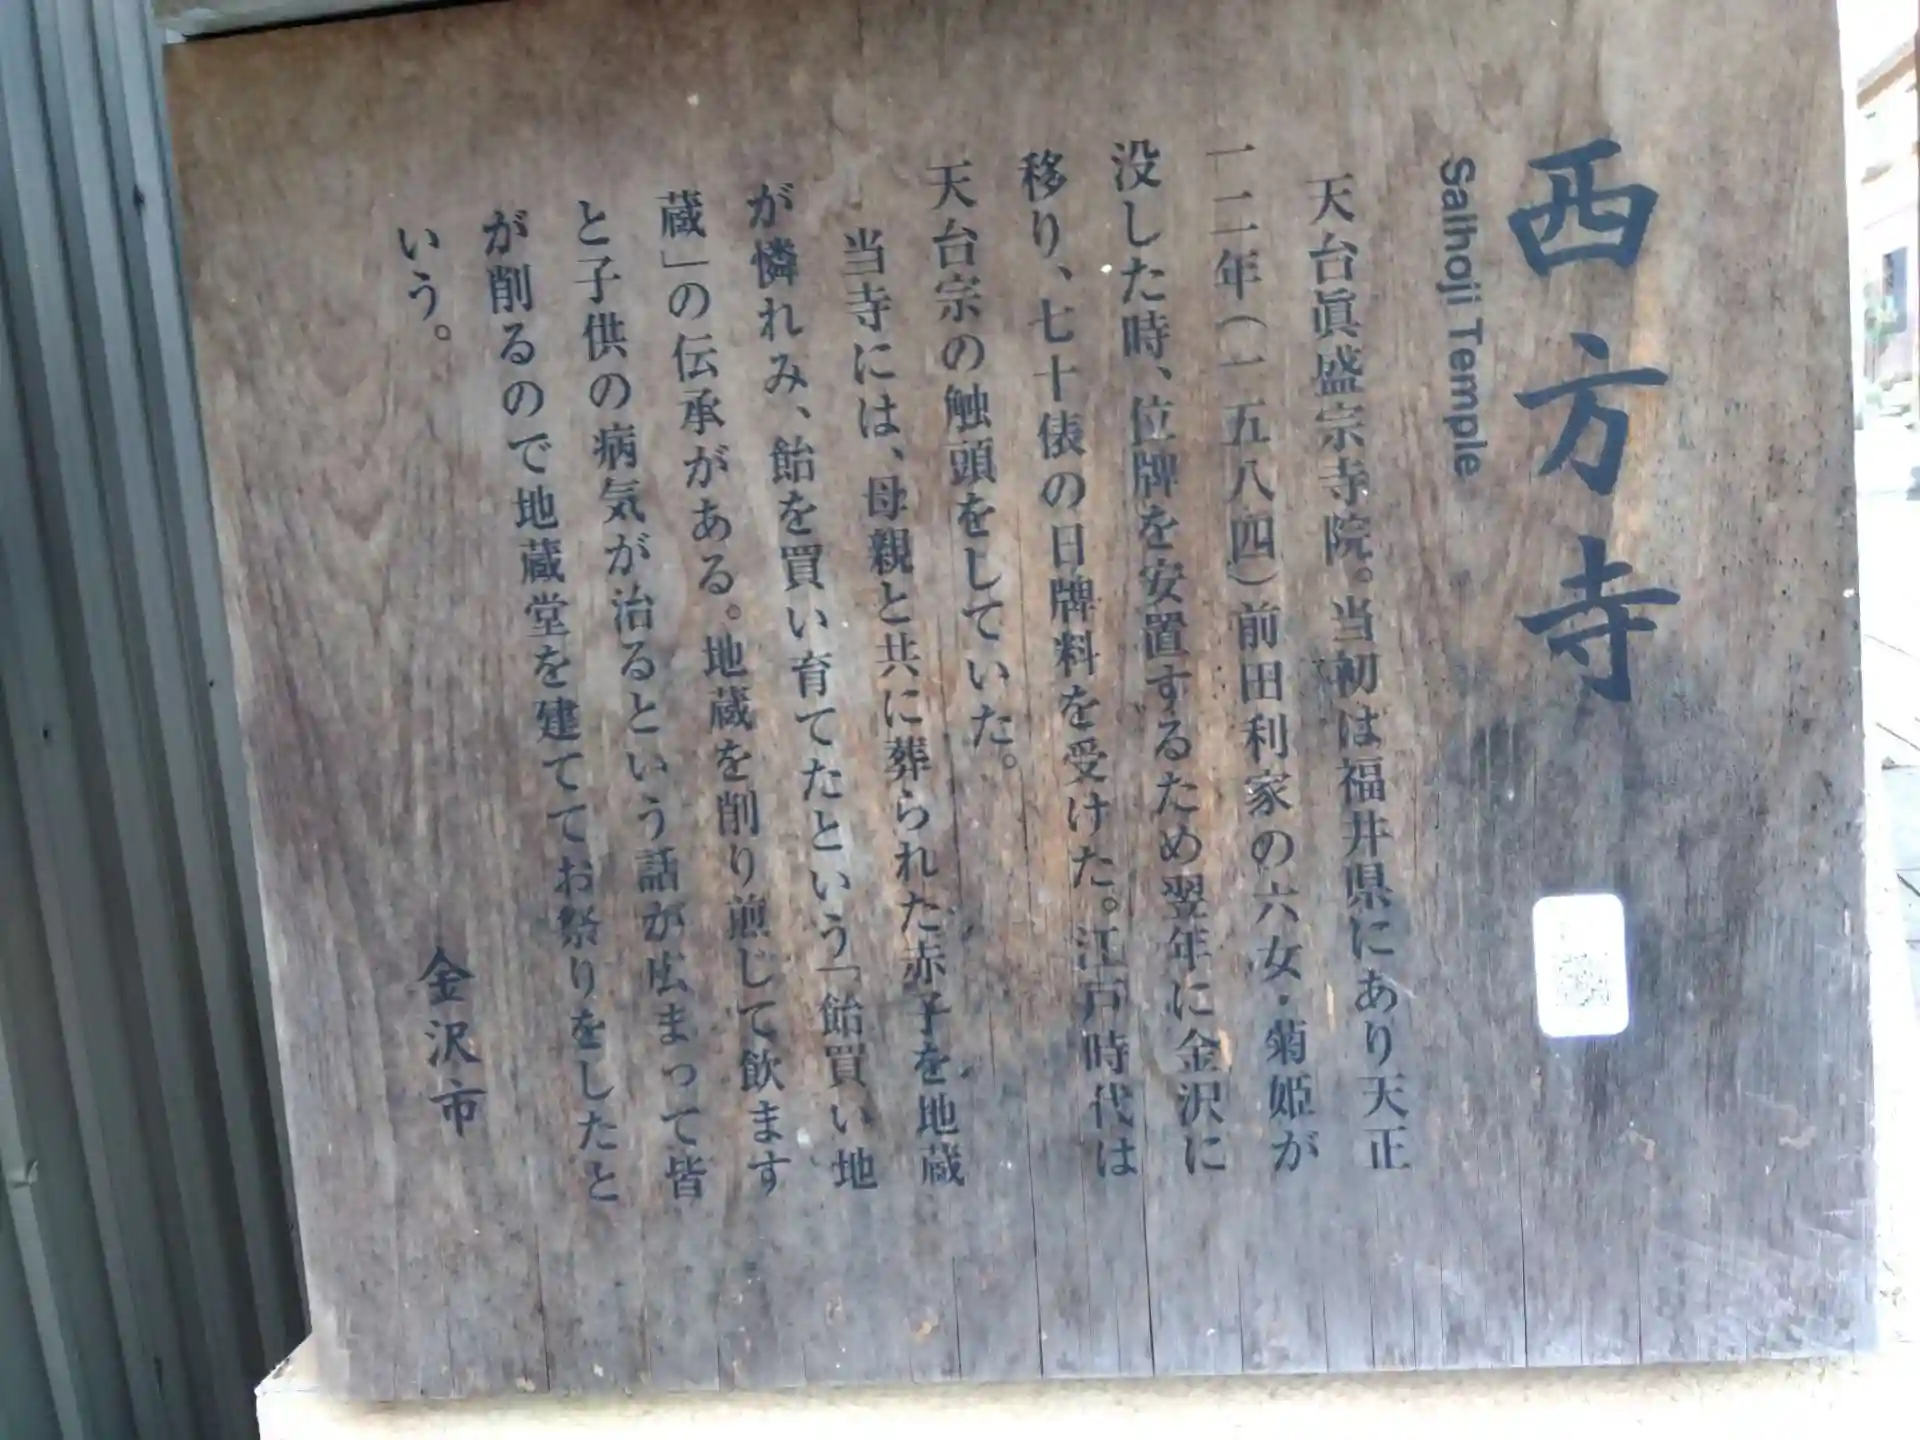 西方寺
Saihoji Temple
天台眞盛宗寺院。当初は福井県にあり天正
一二年(一五八四)前田利家の六女・菊姫が
没した時、位牌を安置するため翌年に金沢に
移り、七十俵の日牌料を受けた。江戸時代は
天台宗の触頭をしていた。
当寺には、母親と共に葬られた赤子を地蔵
が憐れみ、飴を買い育てたという「飴買い地
蔵」の伝承がある。地蔵を削り煎じて飲ます
と子供の病気が治るという話が広まって皆
が削るので地蔵堂を建ててお祭りをしたと
いう。
金沢市